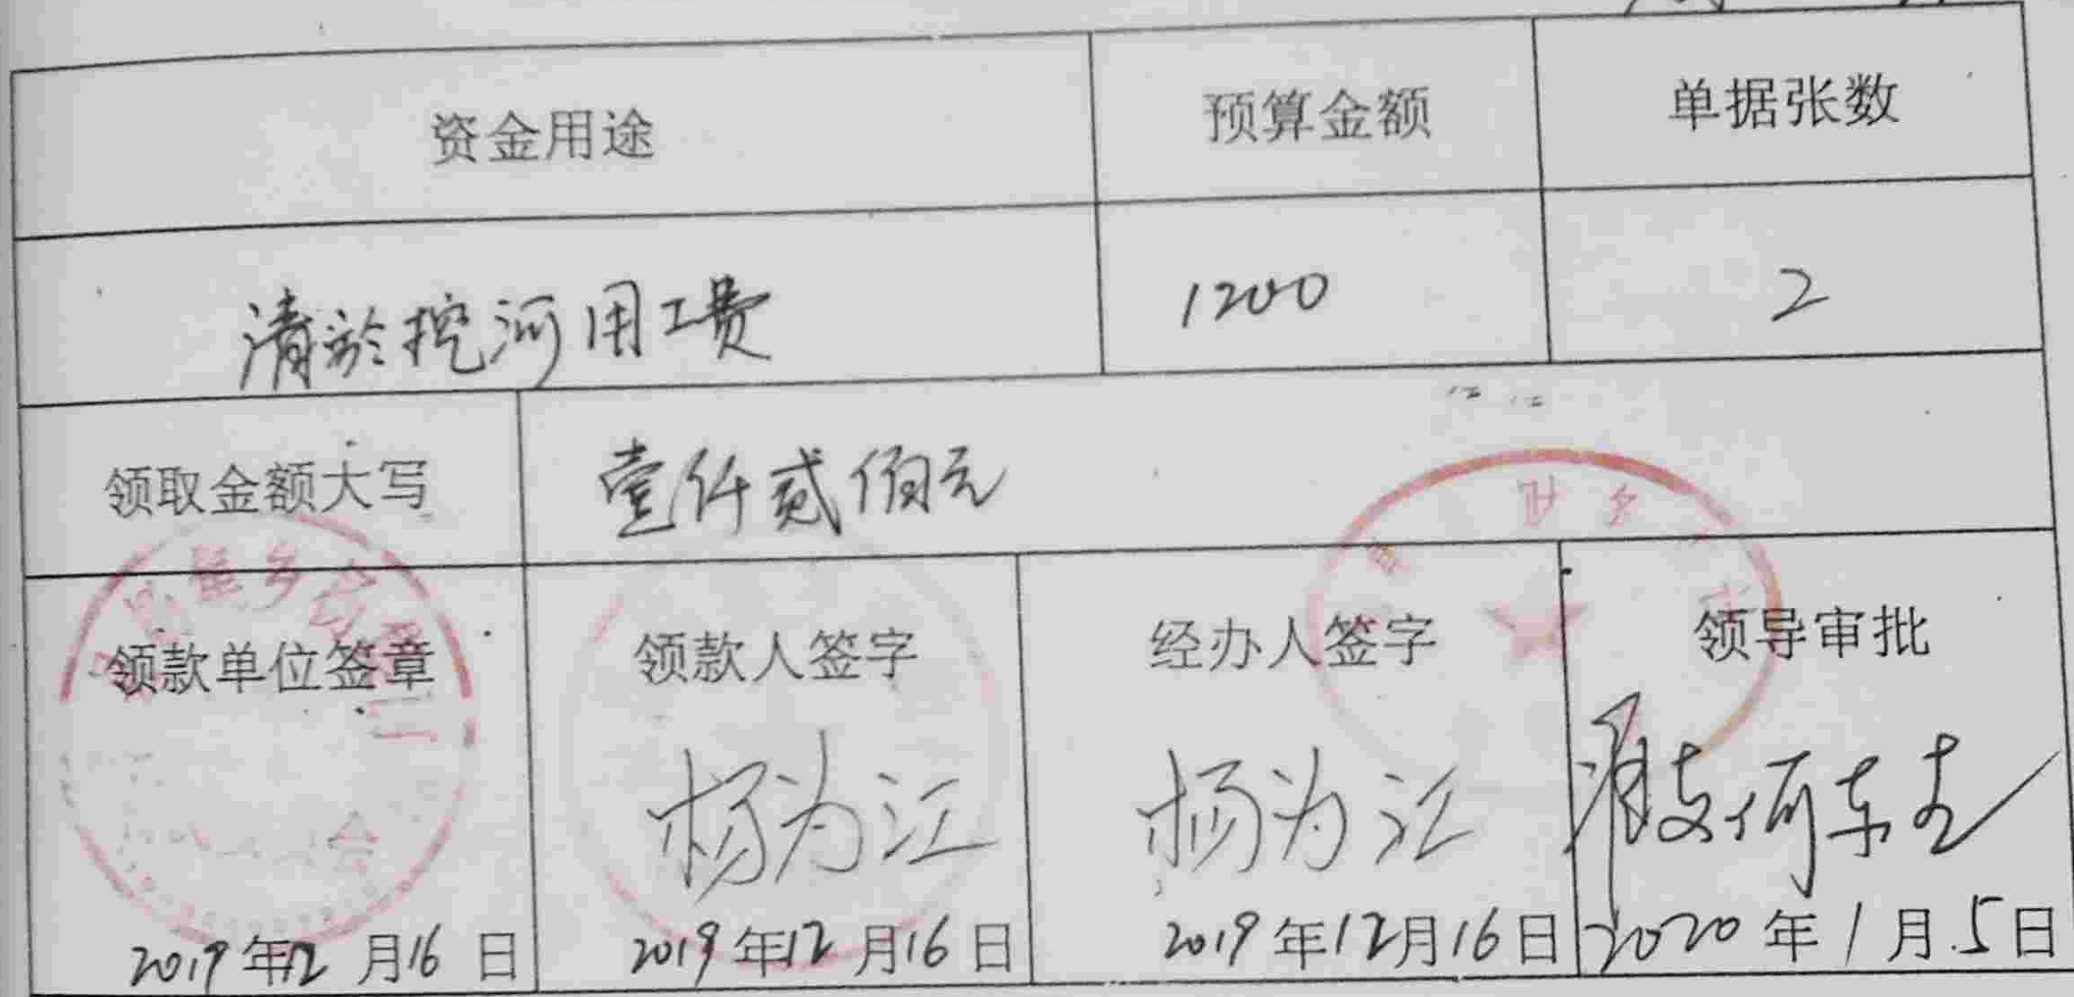 资金用途 预算金额 单据张数
清淤挖河用工费 1200 2
领取金额大写 壹仟贰佰元
领款单位签章 领款人签字 经办人签字 领导审批
杨为江 杨为江
2019年12月16日 2019年12月16日 2019年12月16日 2020年1月5日